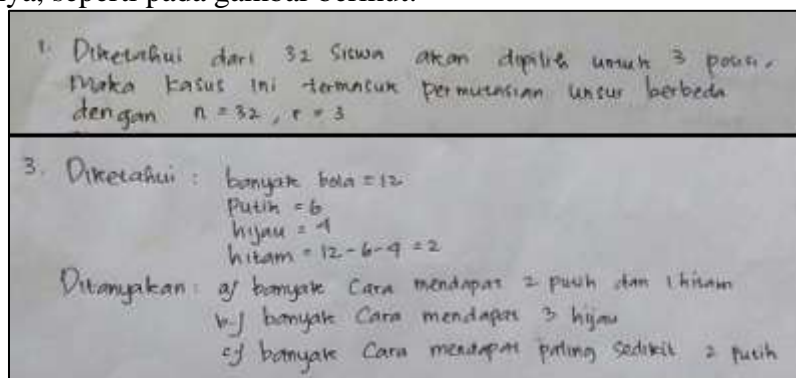 nya, seperti pada gambar berikut.
1. Diketahui dari 32 siswa akan dipilih untuk 3 posisi,
Maka kasus ini termasuk permutasian unsur berbeda
dengan n = 32, r = 3
3. Diketahui : banyak bola = 12
Putih = 6
hijau = 4
hitam = 12 - 6 - 4 = 2
Ditanyakan : a) banyak Cara mendapat 2 putih dan 1 hitam
b.) banyak Cara mendapat 3 hijau
c) banyak Cara mendapat paling sedikit 2 putih